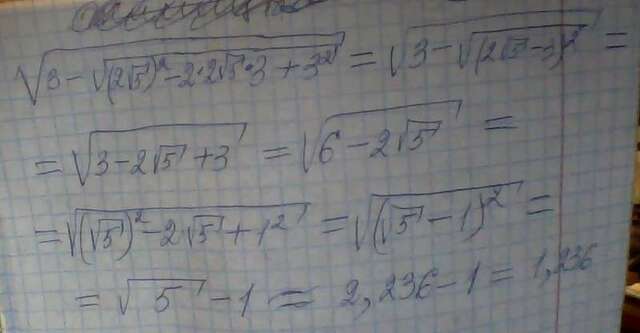 √(3 − √((2√5)² − 2·2√5·3 + 3²)) = √(3 − √((2√5 − 3)²)) =
= √(3 − 2√5 + 3) = √(6 − 2√5) =
= √((√5)² − 2√5 + 1²) = √((√5 − 1)²) =
= √5 − 1 = 2,236 − 1 = 1,236